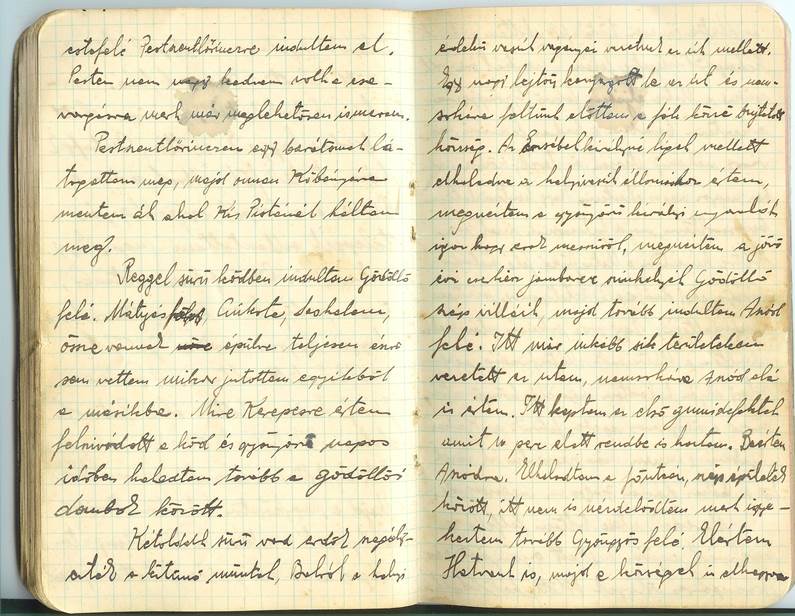 estefelé Pestszentlőrincre indultam el.
Pesten nem nagy kedvem volt a cse-
vargásra mert már meglehetősen ismerem.
Pestszentlőrincen egy barátomat lá-
togattam meg, majd onnan Kőbányára
mentem át ahol Kis Pistánál háltam
meg.
Reggel sürü ködben indultam Gödöllő
felé. Mátyásföld, Cinkota,
össze vannak épülve teljesen észre
sem vettem mikor jutottam egyikből
a másikba. Mire Kerepesre értem
felszívódott a köd és gyönyörű napos
időben haladtam tovább a gödöllői
dombok között.
Kétoldalt sürü vad erdők szegélyez-
a kitünő müutat, Balról a helyi
érdekü vasút sinpárjai az út mellett.
Egy nagy lejtőn kanyargott le az út és nem-
sokára feltünt előttem a fák közé
község. Az Erzsébet királyné liget mellett
elhaladva a helyivasút állomáshoz értem,
megnéztem a gyönyörű királyi
megnéztem a jövő
évi cserkész jamboree szinhelyét Gödöllő
szép villáit, majd tovább indultam Aszód
felé. Itt már inkább sik területeken
vezetett az utam, nemsokára Aszód alá
is értem. Itt kaptam az első gumidefektet
amit 10 perc alatt rendbe is hoztam. Beértem
Aszódra. Elhaladtam a főutcán, szép épületek
között, itt nem is nézelődtem mert igye-
keztem tovább Gyöngyös felé. Elértem
Hatvant is, majd a községet is elhagyva